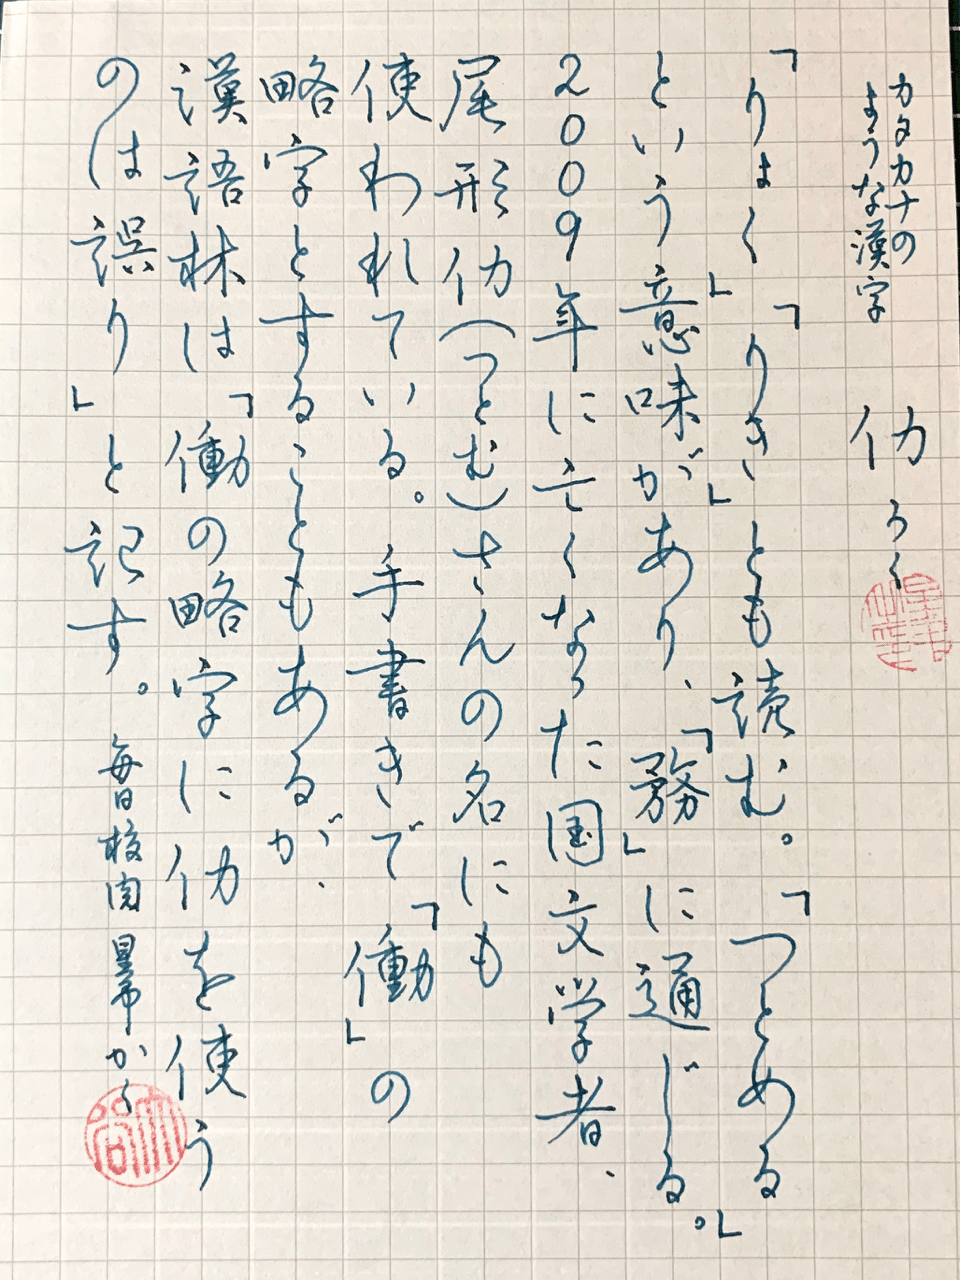 カタカナの
ような漢字
仂 ろく
「りょく」「りき」とも読む。「つとめる」
という意味があり、「務」に通じる。
2009年に亡くなった国文学者、
尾形仂(つとむ)さんの名にも
使われている。手書きで「働」の
略字とすることもあるが、
漢語林は「働の略字に仂を使う
のは誤り」と記す。 毎日校閲 かく